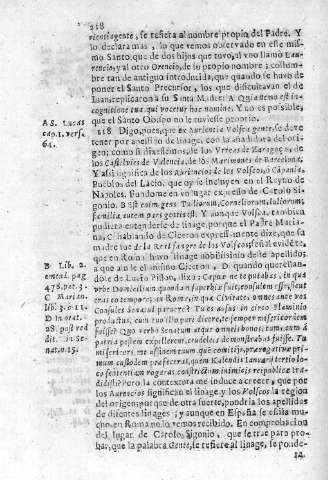 218
rientia gente, se refiera al nombre propio del Padre. Y
lo declara mas, lo que vemos observado en este mis-
mo Santo: que de dos hijos que tuvo, al vno llamò Lau-
rencio, y al otro Orencio, de su propio nombre; costum-
bre tan de antiguo introducida, que quando se huvo de
poner el Santo Precursor, los que dificultavan el de
Iuan, replicaron à su Santa Madre: A Quia nemo est in
cognatione tua qui vocetur hoc nomine. Y no es possible,
que el Santo Obispo no le tuviesse proprio.
A S. Lucas
cap. 1. vers.
61.
118 Digo, pues, que ex Aurientia Volsca gente, se deve
tener por apellido de linage, con la añadidura del ori-
gen; como si dixessemos, de los Vrreas de Zaragoça, de
los Castelvies de Valencia, de los Marimones de Barcelona.
Y assi significa de los Aurincios de los Volscos, ò
Pueblos del Lacio, que oy se incluyen en el Reyno de
Napoles. Fundome en vn lugar expresso de Carolo Si-
gonio. B Est enim gens Tulliorum, Corneliorum,
familia autem pars gentis est. Y aunque Volsca, tambien
pudiera entenderse de linage, porque el Padre Maria-
na, C hablando de Ciceron expressamente dize, que su
madre fue de la Real sangre de los Volscos señal evidẽte,
que en Roma havo linage nobilissimo deste apellidos
B Lib. 2.
pag.
478. pat. 3.
C Marian.
lib. 3. c. 11.
D in orat.
28. post red
dit. in Se-
nat. n. 15.
a que
de Lucio Pison, dixo: Capuæ ne te putabas, in qua
urbe Domicilium quondam superbiæ fuit, consulem esse, sicut
eras eo tempore, an Romæ, in qua Civitate, omnes ante vos
Consules Senatui paruere? Tu es ausus in circo Flaminio
productus, cum tuo illo pari dicere te semper misericordem
fuisse? Quo verbo Senatum atque omnes bonos, tum, cum à
patria pestem expellerent, crudeles demonstrabas fuisse. Tu
misericors, me affinem tuum, quem comitijs prærogativæ pri-
mum custodem præfeceras, quem Kalendis Ianuarij tertio lo-
co sententiam rogaras, constrictum inimicis reipublicæ tra-
didisti? Pero la contextura me induce a creer, que por
los Aurencios significan el linage, y los Volscos la region
del origen: porque de otra suerte, pondria los apellidos
de diferentes linages; y aunque en España se estila mu-
cho, en Roma no lo vemos recibido. En comprobacion
del lugar de Carolo Sigonio, que se trae para pro-
bar, que la palabra Gente, se refiere al linage, se ponde-
ra.